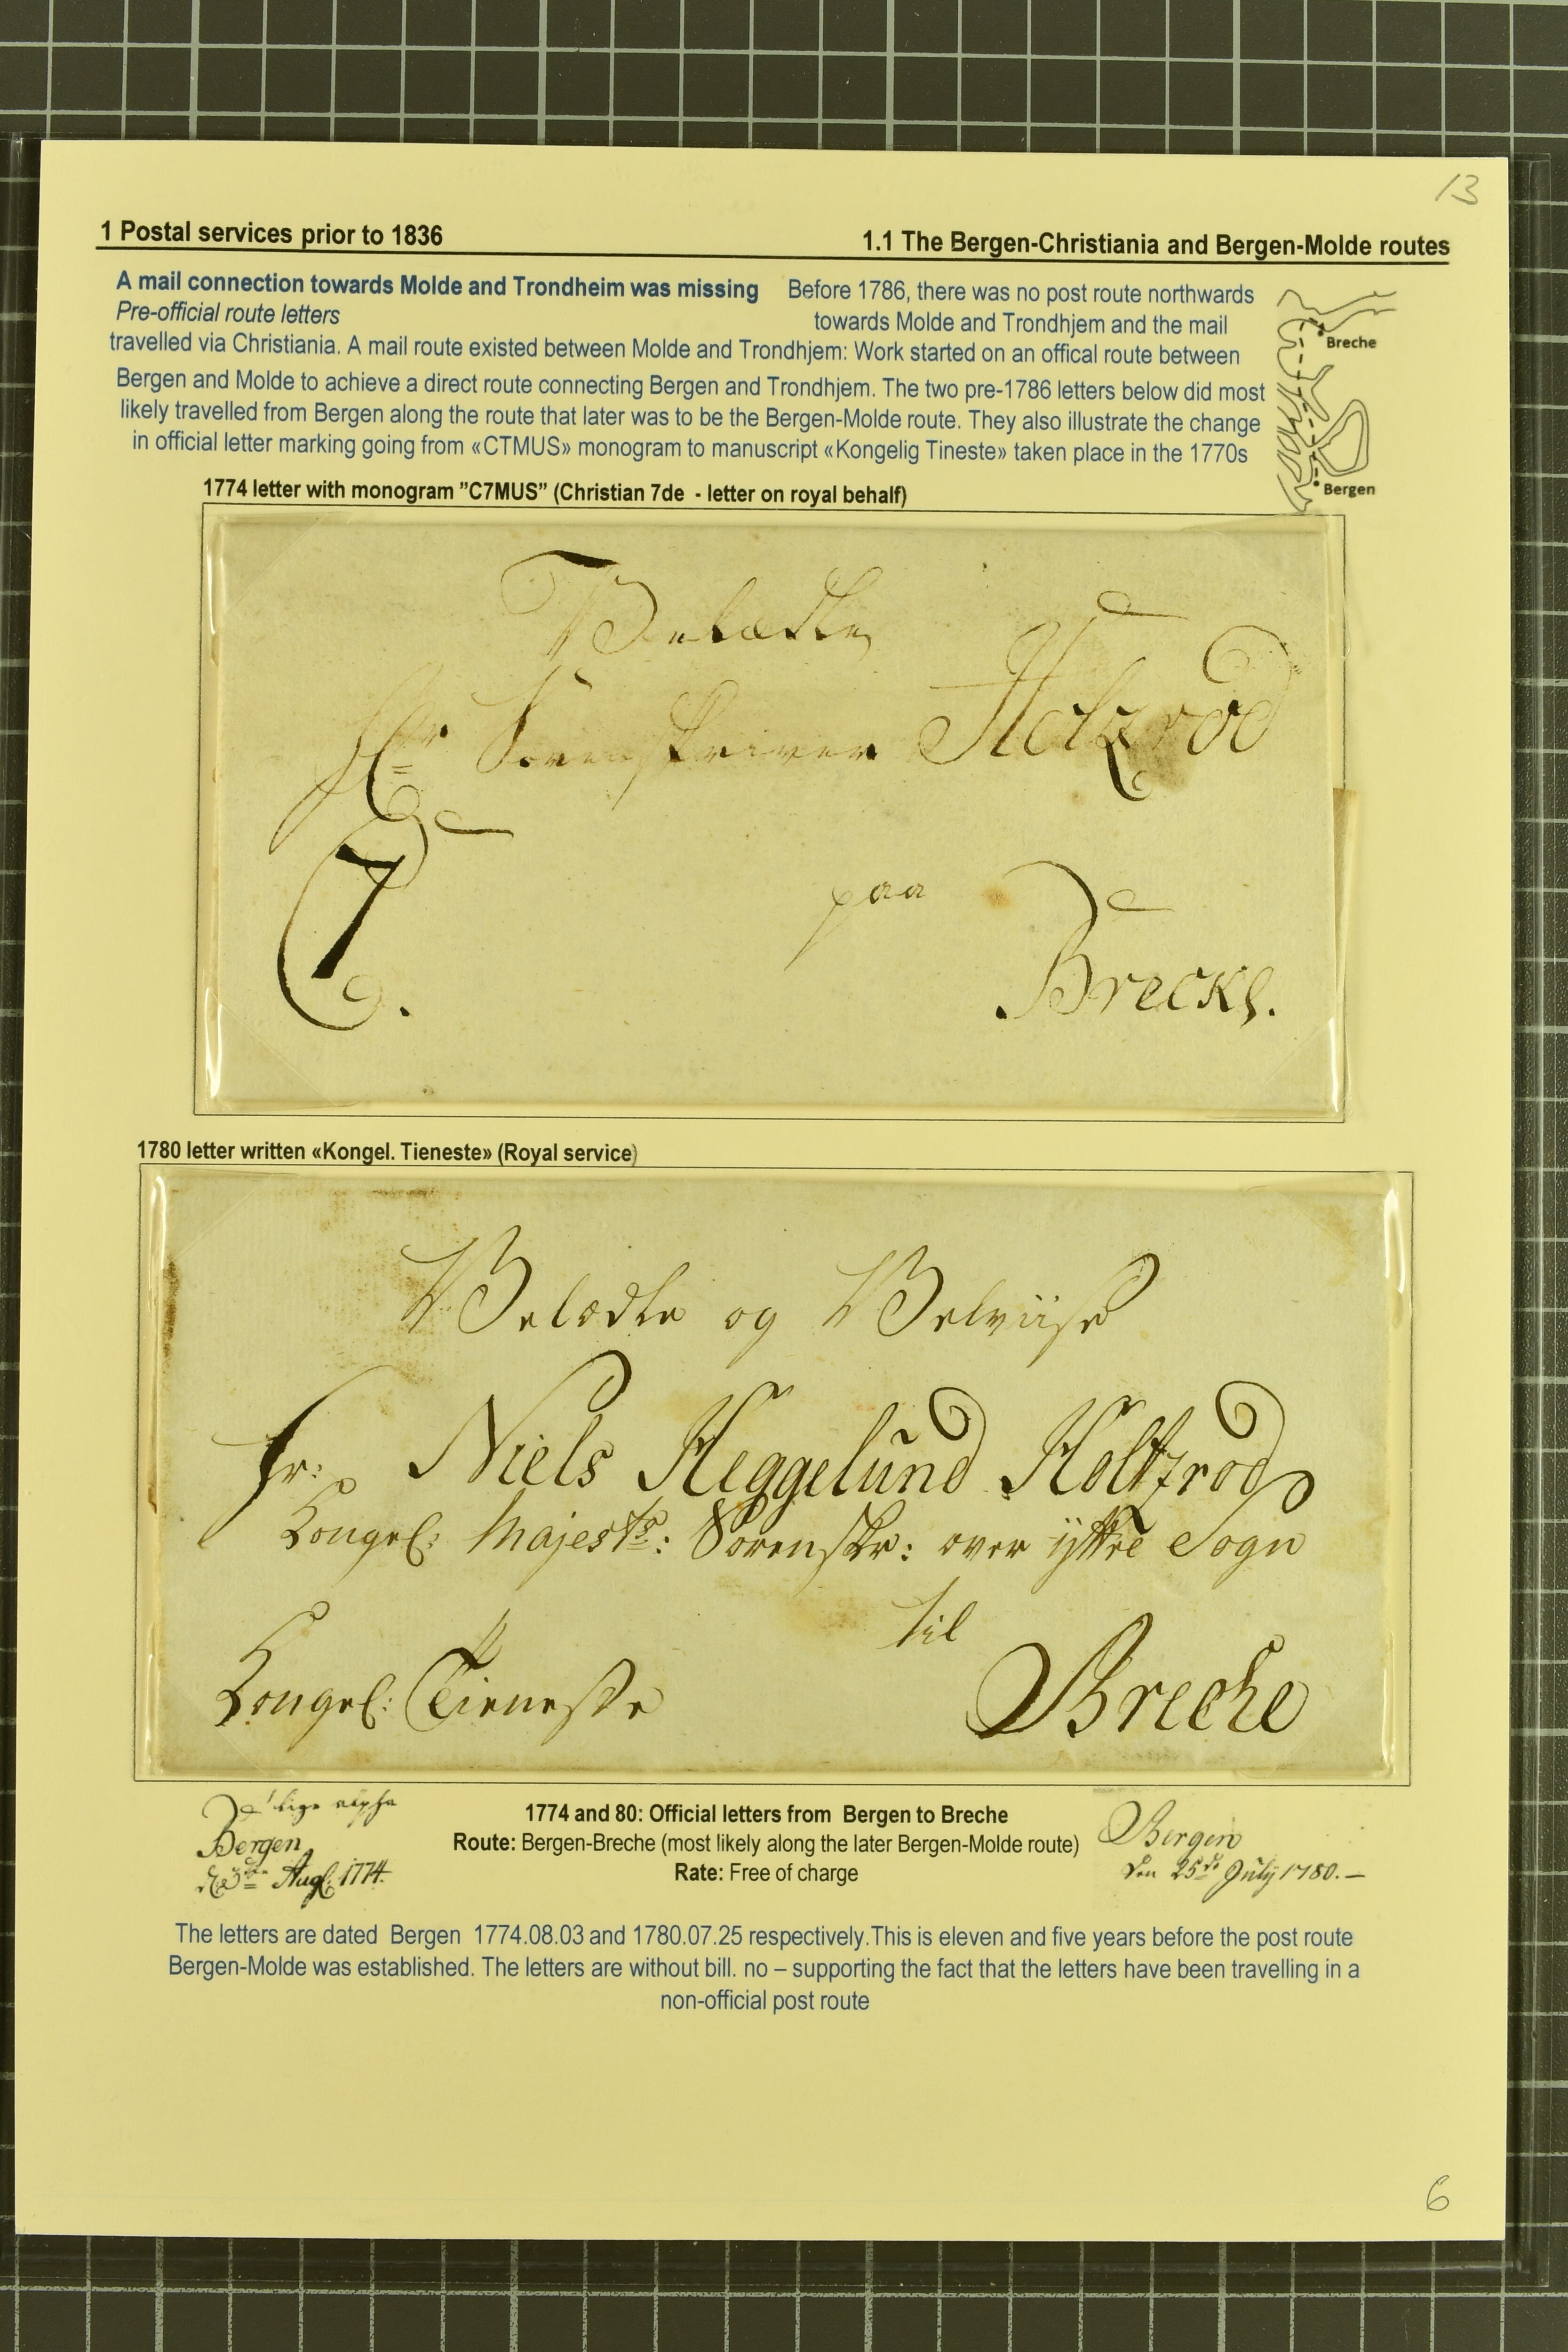 13
1 Postal services prior to 1836
1.1 The Bergen-Christiania and Bergen-Molde routes
A mail connection towards Molde and Trondheim was missing Before 1786, there was no post route northwards
Pre-official route letters towards Molde and Trondhjem and the mail
travelled via Christiania. A mail route existed between Molde and Trondhjem: Work started on an offical route between
Bergen and Molde to achieve a direct route connecting Bergen and Trondhjem. The two pre-1786 letters below did most
likely travelled from Bergen along the route that later was to be the Bergen-Molde route. They also illustrate the change
in official letter marking going from «CTMUS» monogram to manuscript «Kongelig Tineste» taken place in the 1770s
Breche
Bergen
1774 letter with monogram ”C7MUS” (Christian 7de - letter on royal behalf)
Velædle
Hr Sorenskriver Holzrod
C7.
paa
Brecke.
1780 letter written «Kongel. Tieneste» (Royal service)
Velædle og Velviise
Hr: Niels Heggelund Holtzrod
Kongel: Majests: Sorenskr: over ÿttre Sogn
til
Kongel: Tieneste
Breche
Bergen
d 3die Aug. 1774.
1774 and 80: Official letters from Bergen to Breche
Route: Bergen-Breche (most likely along the later Bergen-Molde route)
Rate: Free of charge
Bergen
den 25de Julÿ 1780.—
The letters are dated Bergen 1774.08.03 and 1780.07.25 respectively.This is eleven and five years before the post route
Bergen-Molde was established. The letters are without bill. no – supporting the fact that the letters have been travelling in a
non-official post route
6